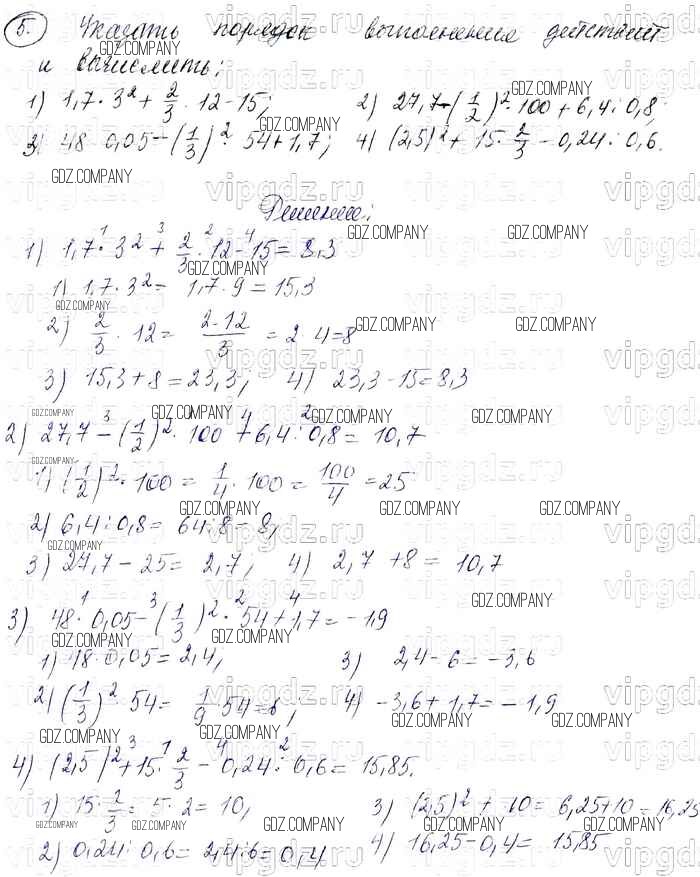 5. Указать порядок выполнения действий
и вычислить:
1) 1,7·3²+2/3·12-15; 2) 27,7-(1/2)²·100+6,4:0,8;
3) 48·0,05-(1/3)²·54+1,7; 4) (2,5)²+15·2/3-0,24:0,6.
Решение:
1) 1,7·3²+2/3·12-15=8,3
1) 1,7·3²=1,7·9=15,3
2) 2/3·12=2·12/3=2·4=8
3) 15,3+8=23,3; 4) 23,3-15=8,3
2) 27,7-(1/2)²·100+6,4:0,8=10,7
1) (1/2)²·100=1/4·100=100/4=25
2) 6,4:0,8=64:8=8;
3) 27,7-25=2,7; 4) 2,7+8=10,7
3) 48·0,05-(1/3)²·54+1,7=-1,9
1) 48·0,05=2,4; 3) 2,4-6=-3,6
2) (1/3)²·54=1/9·54=6; 4) -3,6+1,7=-1,9
4) (2,5)²+15·2/3-0,24:0,6=15,85.
1) 15·2/3=5·2=10, 3) (2,5)²+10=6,25+10=16,25
2) 0,24:0,6=2,4:6=0,4 4) 16,25-0,4=15,85
GDZ.COMPANY
vipgdz.ru